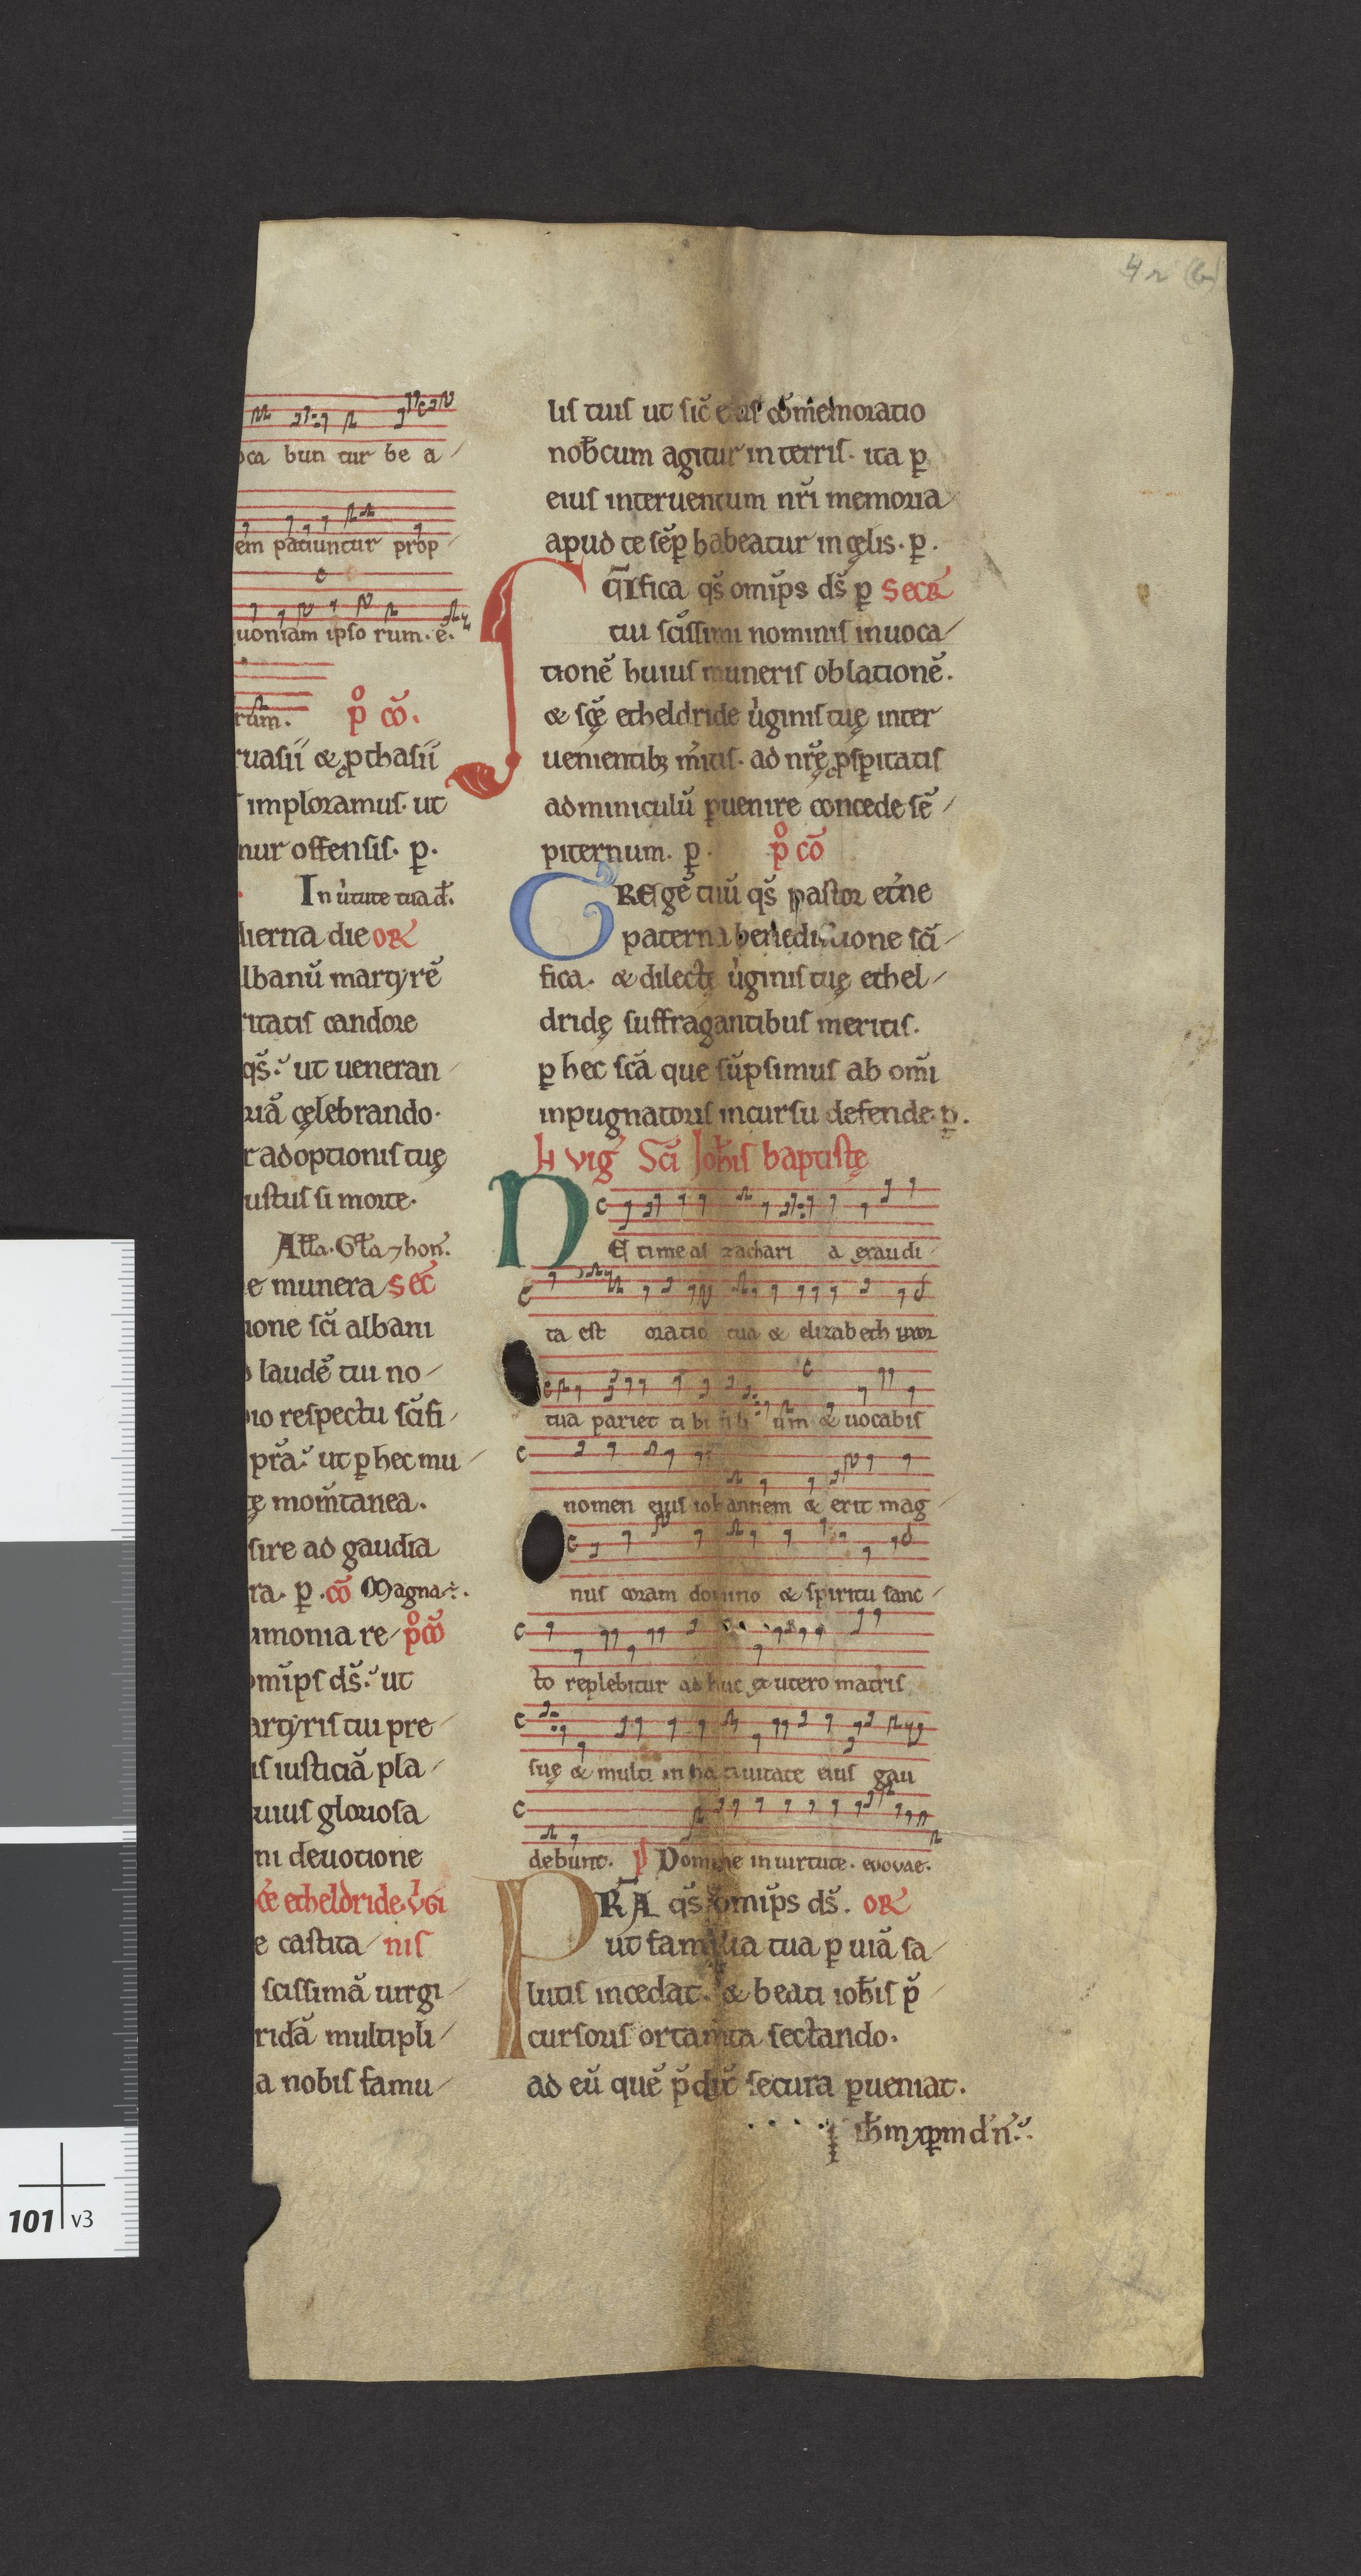 4 r (b)
oca bun tur be a
em patiuntur prop
uoniam ipso rum. e.
rum. p̊ co̅.
ruasii & ꝓthasii
imploramus. ut
nur offensis. p̱.
In u̓tute tua d̅.
dierna die or̅
lbanu̅ martyre̅
ritatis candore
qs̅. ut ueneran
uia̅ cęlebrando.
r adoptionis tuę
ustus si morte.
All̅a. Gl̅a ⁊ hon̅.
e munera sec̅
ione sc̅i albani
laude̅ tui no
io respectu sc̅ifi
pr̅a. ut p̱ hec mu
ę mom̅tanea.
sire ad gaudia
ra. p̱. co̅ Magna ÷.
imonia re p̊co̅
om̅ips ds̅. ut
artyris tui pre
is iusticia̅ pla
uius gloriosa
ni deuotione
c̅e etheldride. u̓gi
e castita nis
scissima̅ uirgi
rida̅ multipli
a nobis famu
lis tuis ut sic̅ eius co̅memoratio
nob̅cum agitur in terris. ita p̱
eius interuentum nr̅i memoria
apud te se̅p̱ habeatur in cęlis. p̱.
Sc̅ifica qs̅ om̅ips ds̅ p̱ secr̅
tui sc̅issimi nominis inuoca
tione̅ huius muneris oblatione̅.
& sc̅ę etheldride u̓ginis tuę inter
uenientib; m̓itis. ad nr̅ę ꝓsp̱itatis
adminiculu̅ p̱uenire concede se̅
piternum. p̱. p̊ co̅
Grege̅ tuu̅ qs̅ pastor et̓ne
paterna benedictione sc̅i
fica. & dilectę u̓ginis tuę ethel
dridę suffragantibus meritis.
p̱ hec sc̅a que su̅psimus ab om̅i
inpugnatoris incursu defende. p̱.
In vig̅ Sc̅i Joh̅is baptistę
Ne timeas zachari a exaudi
ta est oratio tua & elizabeth uxor
tua pariet ti bi fili um & uocabis
nomen eius iohannem & erit mag
nus coram domino & spiritu sanc
to replebitur ad huc ex utero matris
suę & multi in natiuitate eius gau
debunt. p̅ Domine in uirtute. evovae.
Pr̅a qs̅ om̅ips ds̅. or̅
ut familia tua p̱ uia̅ sa
lutis incedat. & beati ioh̅is p̅
cursoris ortam̅ta sectando.
ad eu̅ que̅ p̅dix̅ secura p̱ueniat.
ih̅m xp̱m d̅n̅.